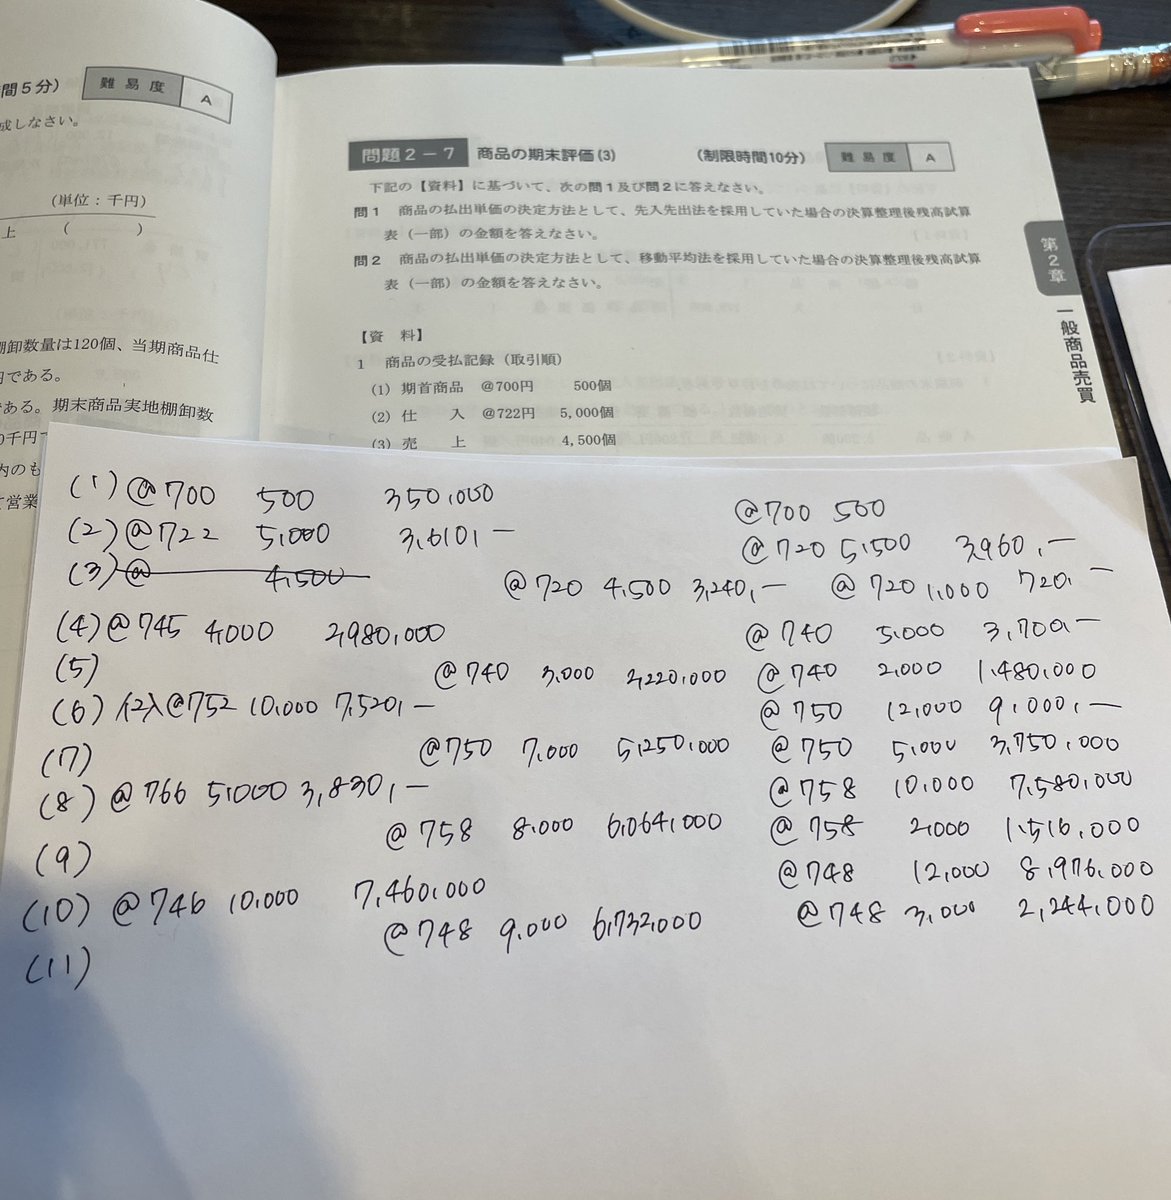 間5分)
難易度 A
成しなさい。
(単位：千円)
上 ( )
棚卸数量は120個、当期商品仕
円である。
である。期末商品実地棚卸数
0千円で
内のも
営業
問題2-7 商品の期末評価(3) (制限時間10分) 難易度 A
下記の【資料】に基づいて、次の問1及び問2に答えなさい。
問1 商品の払出単価の決定方法として、先入先出法を採用していた場合の決算整理後残高試算
表(一部)の金額を答えなさい。
問2 商品の払出単価の決定方法として、移動平均法を採用していた場合の決算整理後残高試算
表(一部)の金額を答えなさい。
【資 料】
1 商品の受払記録(取引順)
(1) 期首商品 @700円 500個
(2) 仕 入 @722円 5,000個
(3) 売 上 4,500個
第2章
一般商品売買
(1) @700 500 350,000 @700 500
(2) @722 5,000 3,610,— @720 5,500 3,960,—
(3) @ 4,500 @720 4,500 3,240,— @720 1,000 720,—
(4) @745 4,000 2,980,000 @740 5,000 3,700,—
(5) @740 3,000 2,220,000 @740 2,000 1,480,000
(6) 仕入 @752 10,000 7,520,— @750 12,000 9,000,—
(7) @750 7,000 5,250,000 @750 5,000 3,750,000
(8) @766 5,000 3,830,— @758 10,000 7,580,000
(9) @758 8,000 6,064,000 @758 2,000 1,516,000
(10) @746 10,000 7,460,000 @748 12,000 8,976,000
(11) @748 9,000 6,732,000 @748 3,000 2,244,000